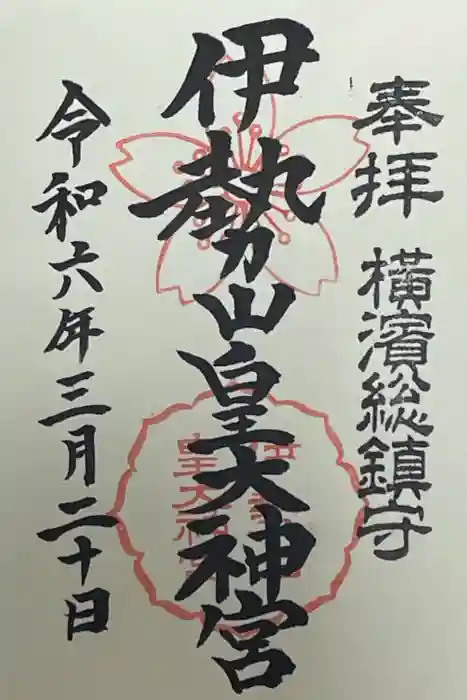 奉拝 横濱総鎮守
伊勢山皇大神宮
令和六年三月二十日